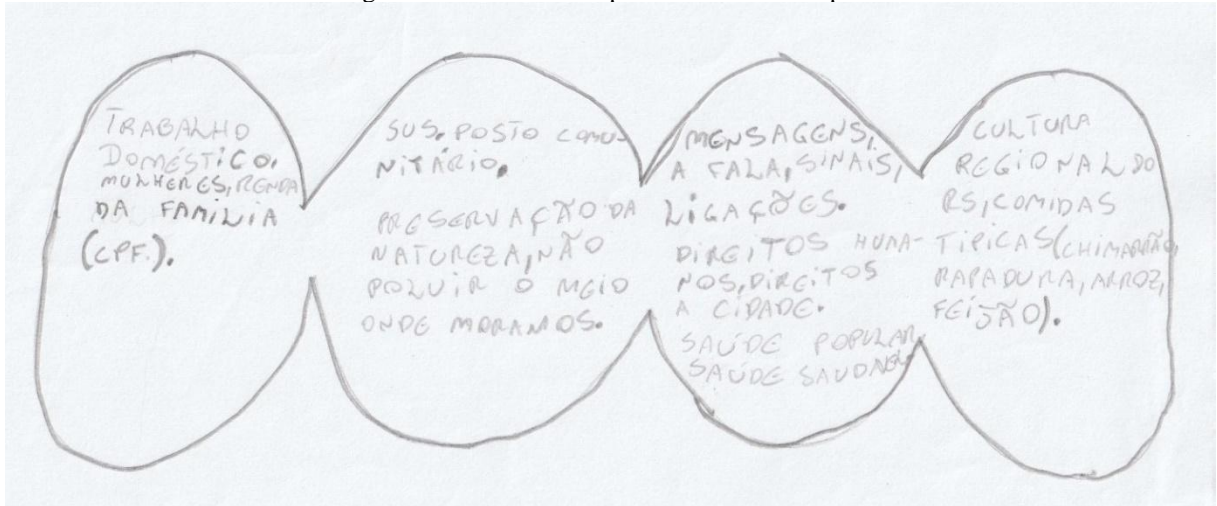 TRABALHO
DOMÉSTICO,
MULHERES, RENDA
DA FAMÍLIA
(CPF.).
SUS. POSTO COMU-
NITÁRIO.
PRESERVAÇÃO DA
NATUREZA, NÃO
POLUIR O MEIO
ONDE MORAMOS.
MENSAGENS,
A FALA, SINAIS,
LIGAÇÕES.
DIREITOS HUMA-
NOS, DIREITOS
A CIDADE.
SAÚDE POPULAR,
SAÚDE
CULTURA
REGIONAL DO
RS, COMIDAS
TÍPICAS (CHIMARRÃO,
RAPADURA, ARROZ,
FEIJÃO).